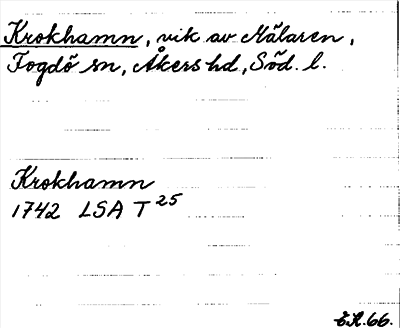 Krokhamn, vik av Mälaren,
Fogdö sn, Åkers hd, Söd. l.
Krokhamn
1742 LSA T 25